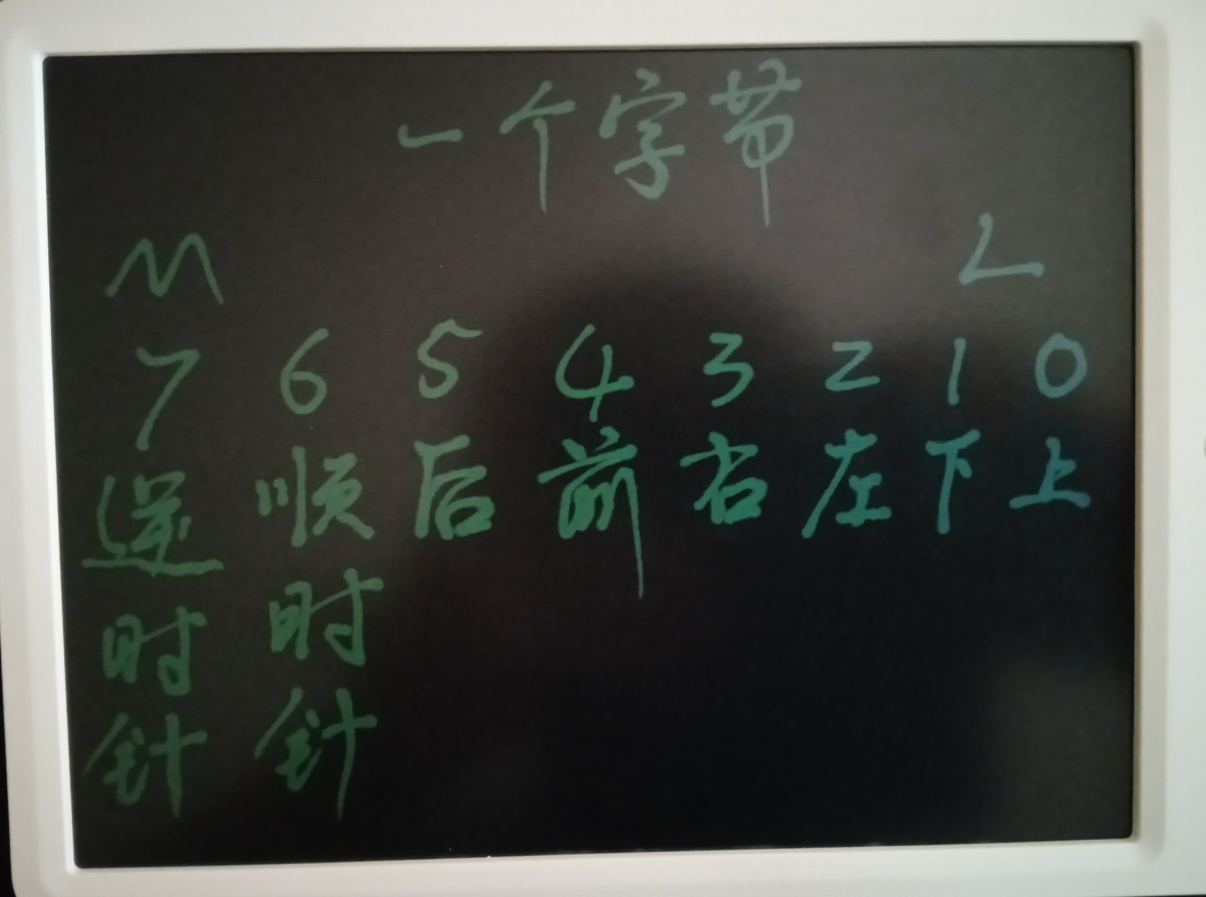 一个字节
M L
7 6 5 4 3 2 1 0
逆时针 顺时针 后 前 右 左 下 上